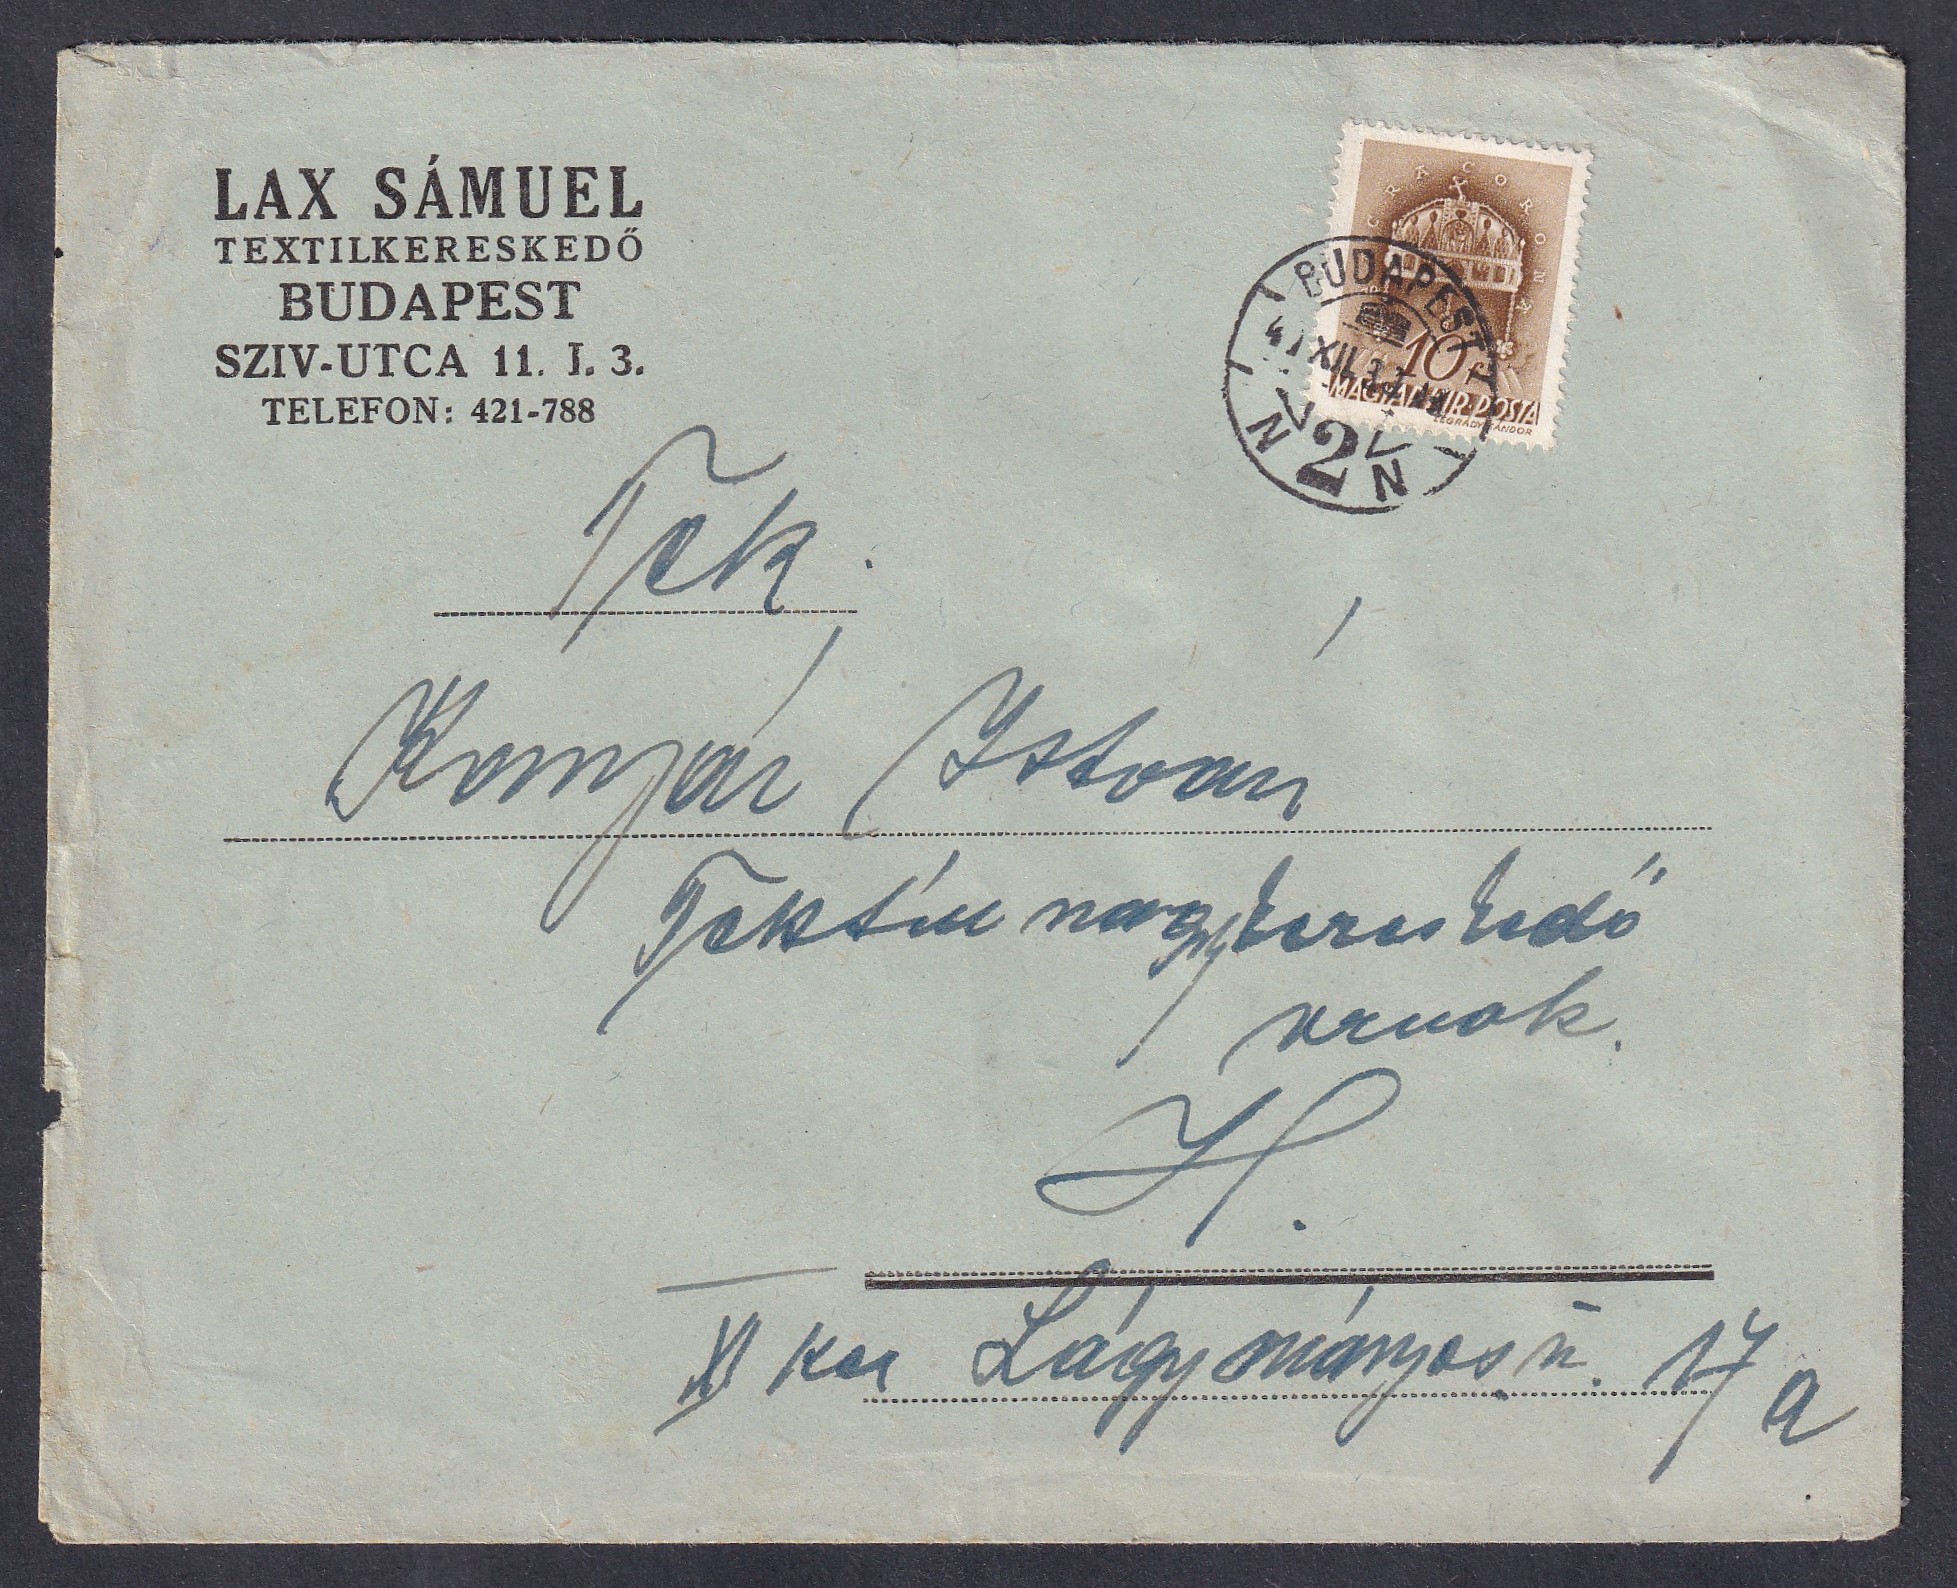 LAX SÁMUEL
TEXTILKERESKEDŐ
BUDAPEST
SZIV-UTCA 11. I. 3.
TELEFON: 421-788
SACRA CORONA
10 f
MAGYAR KIR. POSTA
LÉGRÁDY SÁNDOR
BUDAPEST
41 XII.
N 2 N
Tek.
Komjár István
Textil nagykereskedő
urnak.
H.
XI ker Lágymányosi u. 17
a